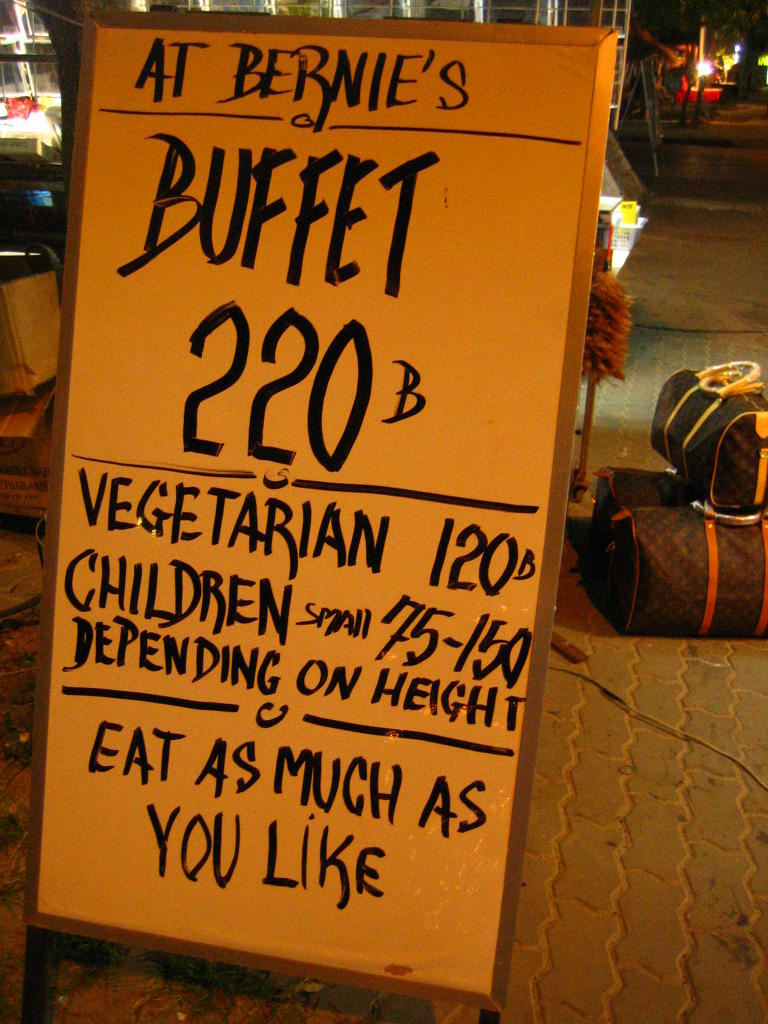 AT BERNIE'S
BUFFET
220 B
VEGETARIAN 120 B
CHILDREN SMAll 75-150
DEPENDING ON HEIGHT
EAT AS MUCH AS
YOU LIKE